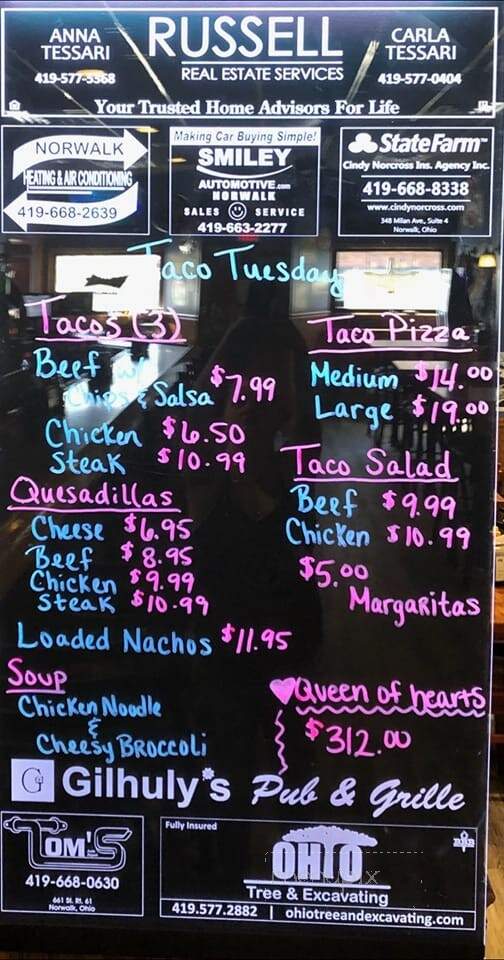 ANNA
TESSARI
419-577-3368
RUSSELL
REAL ESTATE SERVICES
CARLA
TESSARI
419-577-0404
Your Trusted Home Advisors For Life
NORWALK
HEATING & AIR CONDITIONING
419-668-2639
Making Car Buying Simple!
SMILEY
AUTOMOTIVE.com
NORWALK
SALES SERVICE
419-663-2277
StateFarm™
Cindy Norcross Ins. Agency Inc.
419-668-8338
www.cindynorcross.com
348 Milan Ave., Suite 4
Norwalk, Ohio
Taco Tuesday
Tacos (3)
Beef w/
Chips & Salsa $7.99
Chicken $6.50
Steak $10.99
Quesadillas
Cheese $6.95
Beef $8.95
Chicken $9.99
Steak $10.99
Loaded Nachos $11.95
Soup
Chicken Noodle
&
Cheesy Broccoli
Taco Pizza
Medium $14.00
Large $19.00
Taco Salad
Beef $9.99
Chicken $10.99
$5.00
Margaritas
Queen of hearts
$312.00
G
Gilhuly's Pub & Grille
TOM'S
419-668-0630
661 St. Rt. 61
Norwalk, Ohio
Fully Insured
OHIO
Tree & Excavating
419.577.2882 | ohiotreeandexcavating.com